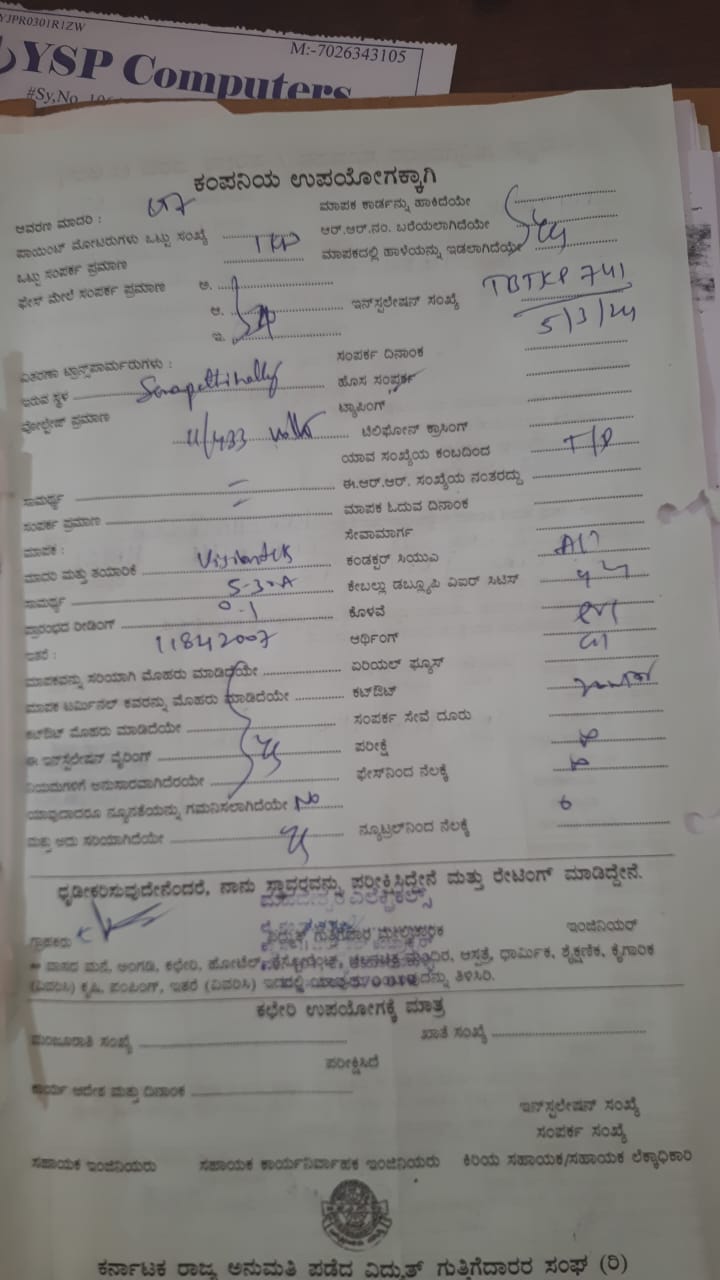 YJPR0301R1ZW
M:-7026343105
YSP Computers
#Sy,No.
ಕಂಪನಿಯ ಉಪಯೋಗಕ್ಕಾಗಿ
ಆವರಣ ಮಾದರಿ :
ಮಾಪಕ ಕಾರ್ಡನ್ನು ಹಾಕಿದೆಯೇ
ಪಾಯಿಂಟ್ ಮೋಟರುಗಳು ಒಟ್ಟು ಸಂಖ್ಯೆ
ಆರ್.ಆರ್.ನಂ. ಬರೆಯಲಾಗಿದೆಯೇ
ಒಟ್ಟು ಸಂಪರ್ಕ ಪ್ರಮಾಣ
ಮಾಪಕದಲ್ಲಿ ಹಾಳೆಯನ್ನು ಇಡಲಾಗಿದೆಯೇ
ಫೇಸ್ ಮೇಲೆ ಸಂಪರ್ಕ ಪ್ರಮಾಣ ಅ.
ಆ. ಇನ್‌ಸ್ಟಲೇಷನ್ ಸಂಖ್ಯೆ TBTKP 741
ಇ. 5/3/24
ವಿತರಣಾ ಟ್ರಾನ್ಸ್‌ಫಾರ್ಮರುಗಳು :
ಸಂಪರ್ಕ ದಿನಾಂಕ
ಇರುವ ಸ್ಥಳ
ಹೊಸ ಸಂಪರ್ಕ
ವೋಲ್ಟೇಜ್ ಪ್ರಮಾಣ
ಟ್ಯಾಪಿಂಗ್
11/433 ಟೆಲಿಫೋನ್ ಕ್ರಾಸಿಂಗ್
ಯಾವ ಸಂಖ್ಯೆಯ ಕಂಬದಿಂದ
ಸಾಮರ್ಥ್ಯ ಈ.ಆರ್.ಆರ್. ಸಂಖ್ಯೆಯ ನಂತರದ್ದು
ಸಂಪರ್ಕ ಪ್ರಮಾಣ ಮಾಪಕ ಓದುವ ದಿನಾಂಕ
ಮಾಪಕ : ಸೇವಾಮಾರ್ಗ
ಮಾದರಿ ಮತ್ತು ತಯಾರಿಕೆ ಕಂಡಕ್ಟರ್ ಸಿಯುಎ
ಸಾಮರ್ಥ್ಯ 5-30A ಕೇಬಲ್ಲು ಡಬ್ಲ್ಯೂಪಿ ವಿಐರ್ ಸಿಟಿಸ್
ಪ್ರಾರಂಭದ ರೀಡಿಂಗ್ 0-1 ಕೊಳವೆ
ಇತರೆ : 11842007 ಆರ್ಥಿಂಗ್
ಮಾಪಕವನ್ನು ಸರಿಯಾಗಿ ಮೊಹರು ಮಾಡಿದೆಯೇ ಏರಿಯಲ್ ಫ್ಯೂಸ್
ಮಾಪಕ ಟರ್ಮಿನಲ್ ಕವರನ್ನು ಮೊಹರು ಮಾಡಿದೆಯೇ ಕಟ್‌ಔಟ್
ಕಟ್‌ಔಟ್ ಮೊಹರು ಮಾಡಿದೆಯೇ ಸಂಪರ್ಕ ಸೇವೆ ದೂರು
ಈ ಇನ್‌ಸ್ಟಲೇಷನ್ ವೈರಿಂಗ್ ಪರೀಕ್ಷೆ
ನಿಯಮಗಳಿಗೆ ಅನುಸಾರವಾಗಿದೆಯೇ ಫೇಸ್‌ನಿಂದ ನೆಲಕ್ಕೆ
ಯಾವುದಾದರೂ ನ್ಯೂನತೆಯನ್ನು ಗಮನಿಸಲಾಗಿದೆಯೇ No
ಮತ್ತು ಅದು ಸರಿಯಾಗಿದೆಯೇ ನ್ಯೂಟ್ರಲ್‌ನಿಂದ ನೆಲಕ್ಕೆ
ಧೃಡೀಕರಿಸುವುದೇನೆಂದರೆ, ನಾನು ಸ್ಥಾವರವನ್ನು ಪರೀಕ್ಷಿಸಿದ್ದೇನೆ ಮತ್ತು ರೇಟಿಂಗ್ ಮಾಡಿದ್ದೇನೆ.
ಗ್ರಾಹಕರು ವಿದ್ಯುತ್ ಗುತ್ತಿಗೆದಾರ ಮೇಲ್ವಿಚಾರಕ ಇಂಜಿನಿಯರ್
ವಾಸದ ಮನೆ, ಅಂಗಡಿ, ಕಛೇರಿ, ಹೋಟೆಲ್, ಮಂದಿರ, ಆಸ್ಪತ್ರೆ, ಧಾರ್ಮಿಕ, ಶೈಕ್ಷಣಿಕ, ಕೈಗಾರಿಕ
(ವಿವರಿಸಿ) ಕೃಷಿ, ಪಂಪಿಂಗ್, ಇತರೆ (ವಿವರಿಸಿ) ಇದರಲ್ಲಿ ತಿಳಿಸಿರಿ.
ಕಛೇರಿ ಉಪಯೋಗಕ್ಕೆ ಮಾತ್ರ
ಮಂಜೂರಾತಿ ಸಂಖ್ಯೆ ಖಾತೆ ಸಂಖ್ಯೆ
ಪರೀಕ್ಷಿಸಿದೆ
ಕಾರ್ಯ ಆದೇಶ ಮತ್ತು ದಿನಾಂಕ
ಇನ್‌ಸ್ಟಲೇಷನ್ ಸಂಖ್ಯೆ
ಸಂಪರ್ಕ ಸಂಖ್ಯೆ
ಸಹಾಯಕ ಇಂಜಿನಿಯರು ಸಹಾಯಕ ಕಾರ್ಯನಿರ್ವಾಹಕ ಇಂಜಿನಿಯರು ಕಿರಿಯ ಸಹಾಯಕ/ಸಹಾಯಕ ಲೆಕ್ಕಾಧಿಕಾರಿ
ಕರ್ನಾಟಕ ರಾಜ್ಯ ಅನುಮತಿ ಪಡೆದ ವಿದ್ಯುತ್ ಗುತ್ತಿಗೆದಾರರ ಸಂಘ (ರಿ)